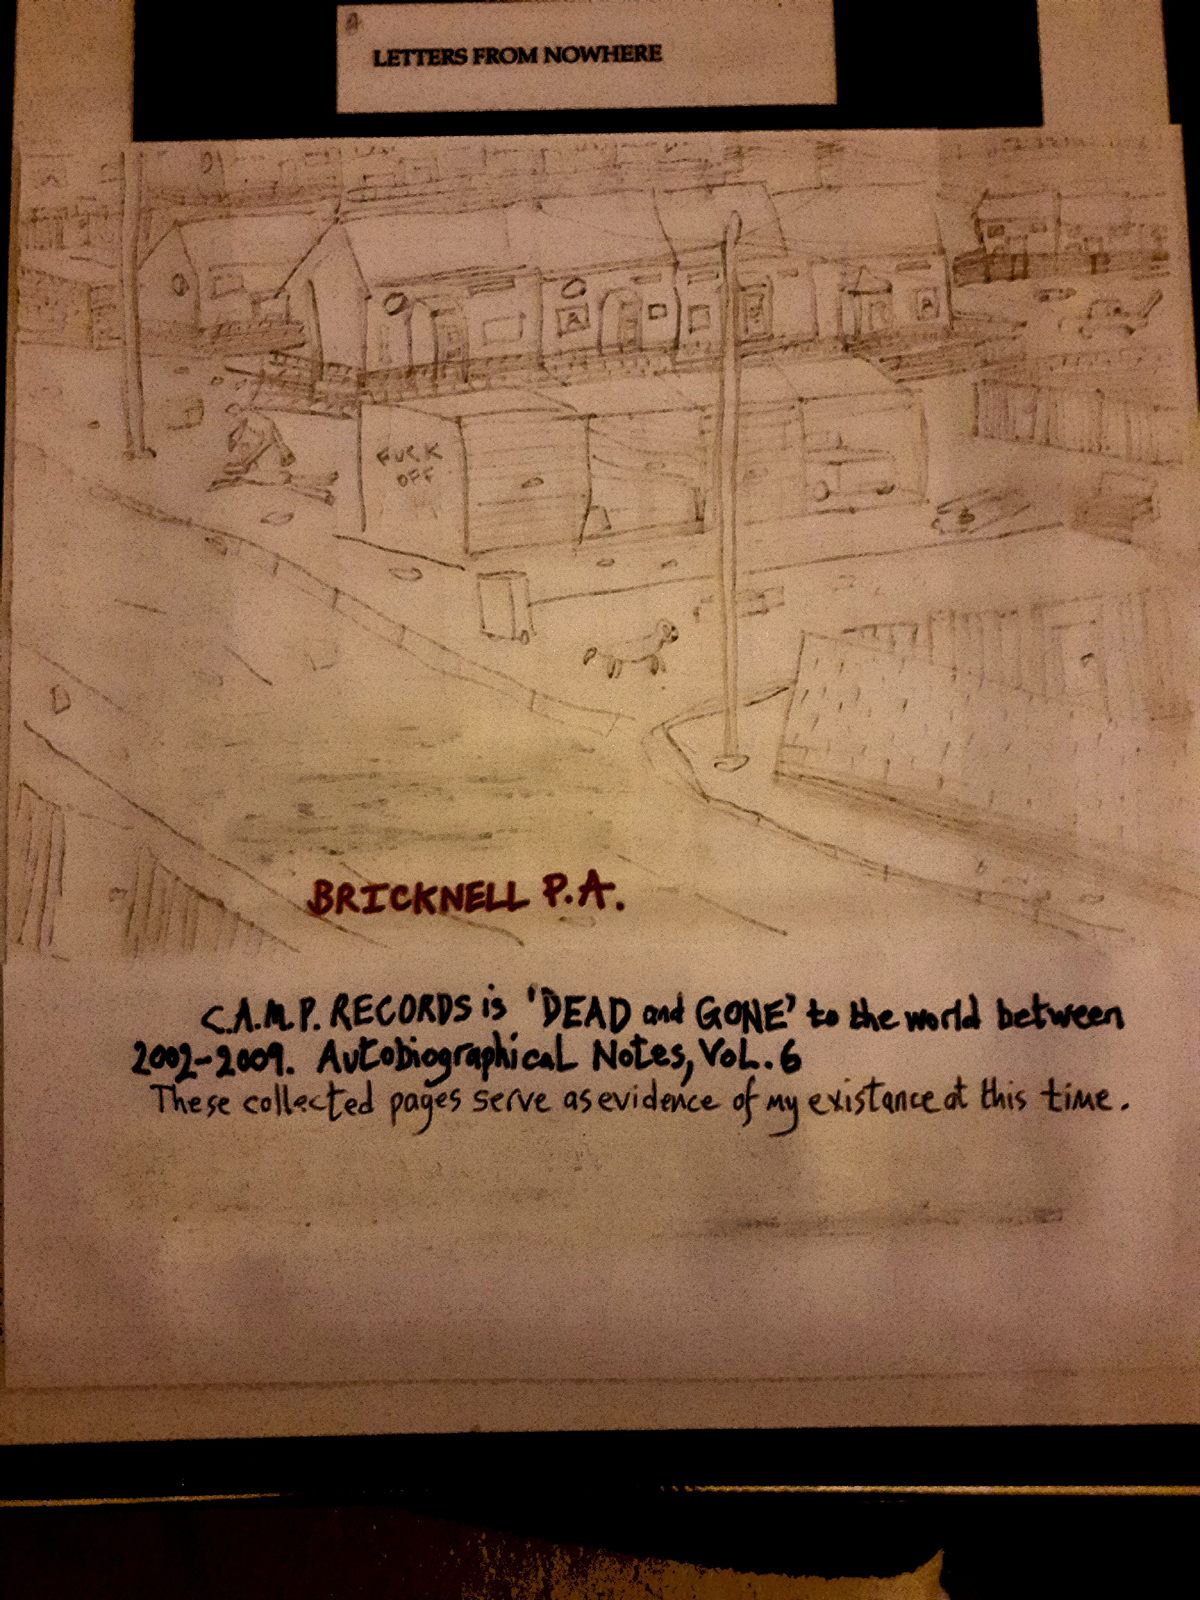 LETTERS FROM NOWHERE
FUCK
OFF
BRICKNELL P.A.
C.A.M.P. RECORDS is 'DEAD and GONE' to the world between
2002-2009. Autobiographical Notes, VOL. 6
These collected pages serve as evidence of my existance at this time.